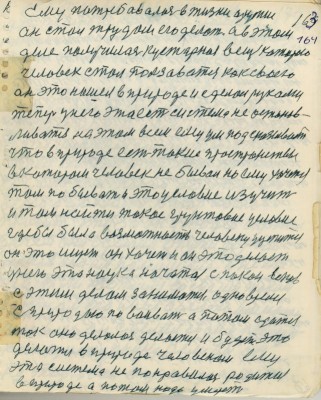 ему потребовалося в жизни другим
он стал трудом его делать а в этом
деле получилася кустарная вещ которую
человек стал показавать как своего
он это нашел в природе и сделал руками
теперь у него эта есть система не останов-
ливатся на этом всем ему ум подсказывает
что в природе есть такие пространства
в котором человек не бывал но ему хочется
там побывать это условие изучить
и там найти такое грунтовое условие
где бы была возможность человеку
он это ищет он хочет и он это делает
у него эта наука начата с
с этим делом заниматся одно время
с природою по воевать а потом сдатся
так оно делалося делается и будет это
делатся в природе человеком ему
эта система не понравилася родится
в природе а потом надо умереть
163
164